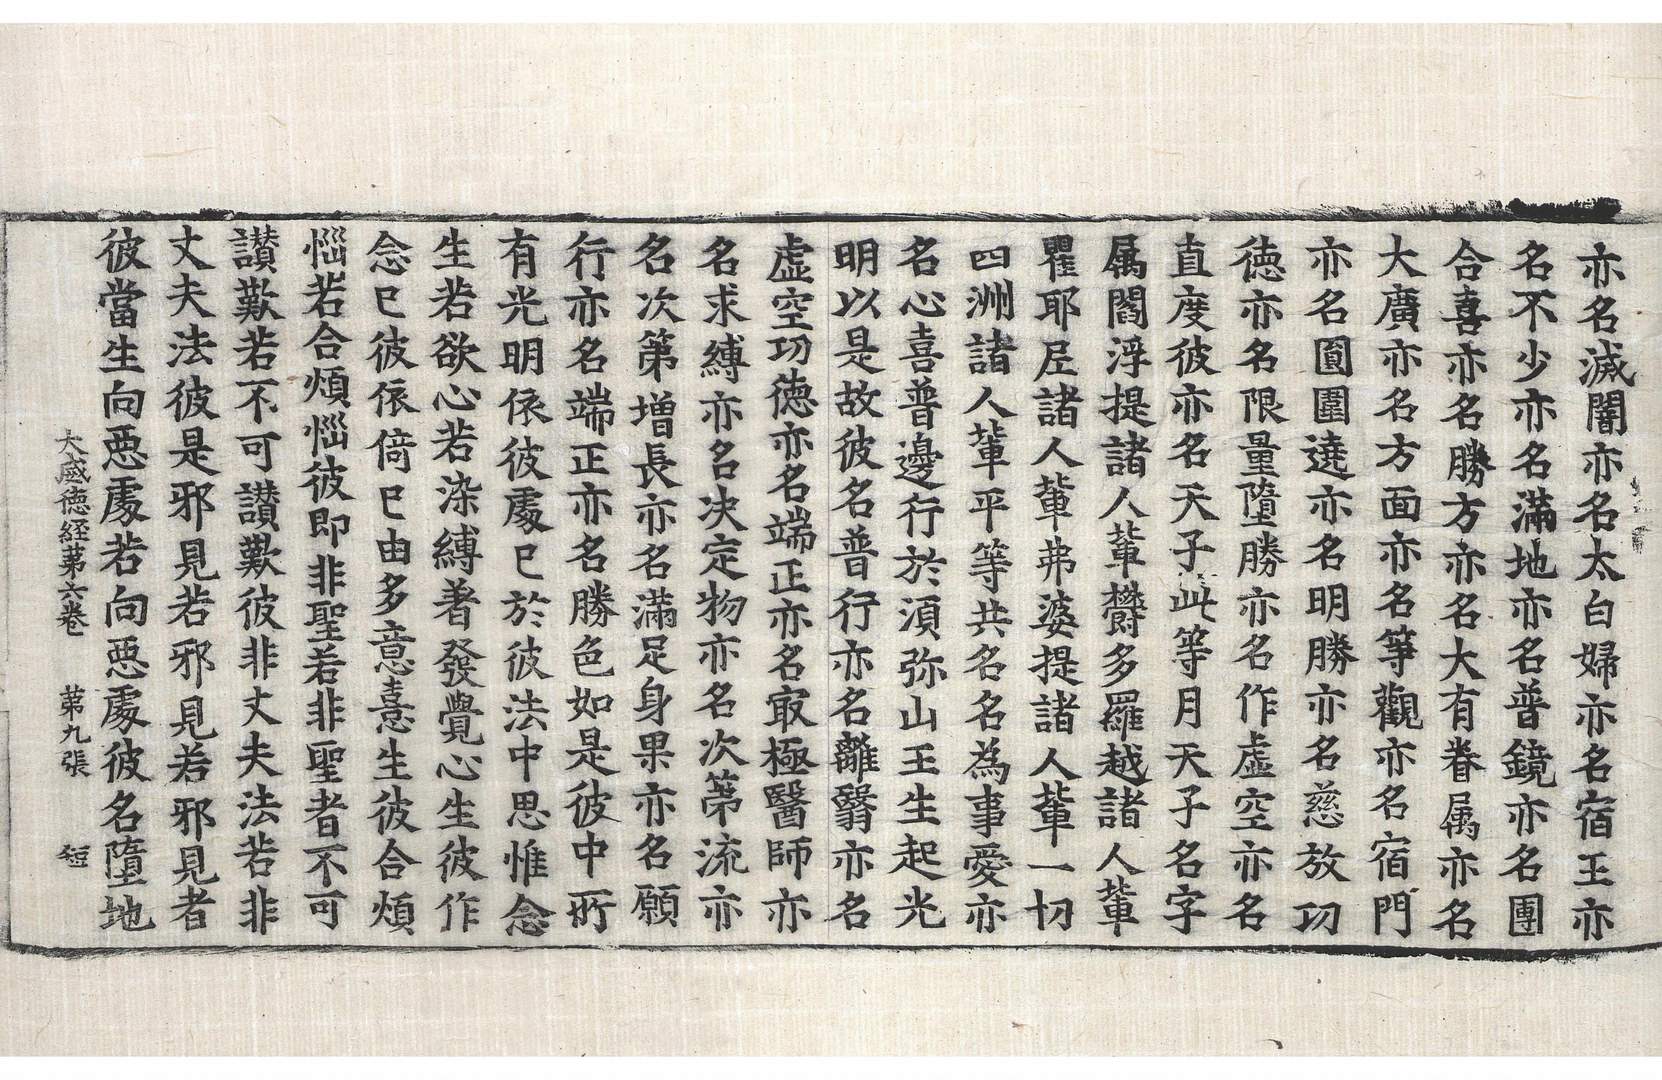 亦名滅闇亦名太白婦亦名宿王亦
名不少亦名滿地亦名普鏡亦名團
合喜亦名勝方亦名大有眷属亦名
大廣亦名方面亦名等觀亦名宿門
亦名圎圍遶亦名明勝亦名慈放功
徳亦名限量墮勝亦名作虛空亦名
直度彼亦名天子此等月天子名字
属閻浮提諸人軰欝多羅越諸人軰
瞿耶尼諸人軰弗婆提諸人軰一切
四洲諸人軰平等共名名為事愛亦
名心喜普邊行於須弥山王生起光
明以是故彼名普行亦名離翳亦名
虛空功徳亦名端正亦名㝡極醫師亦
名求縛亦名决定物亦名次第流亦
名次第增長亦名滿足身果亦名願
行亦名端正亦名勝色如是彼中所
有光明依彼處已於彼法中思惟念
生若欲心若染縛著發覺心生彼作
念已彼依倚已由多意憙生彼合煩
惱若合煩惱彼即非聖若非聖者不可
讃歎若不可讃歎彼非丈夫法若非
丈夫法彼是邪見若邪見若邪見者
彼當生向惡處若向惡處彼名墮地
大威德経苐六卷 苐九張 短